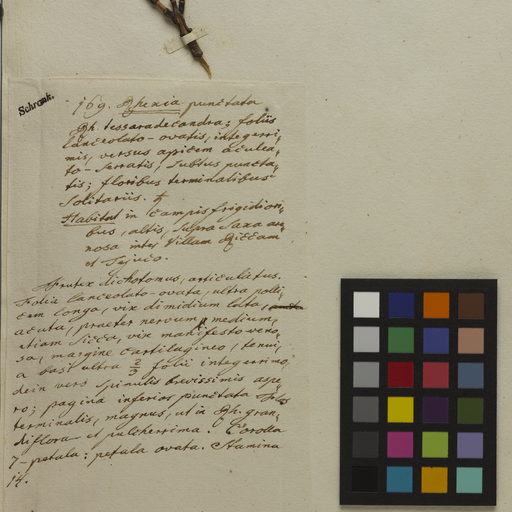 Schrank.
169. Rhexia punctata
Rh. tessaradecandra; foliis
lanceolato-ovatis, integerri,
mis, versus apicem aculea,
to-serratis, subtus puncta,
tis; floribus terminalibus
solitariis. ♄
Habitat in campis frigidiori,
bus, altis, supra saxa are,
nosa inter Villam Riccam
et Tejuco.
Frutex dichotomus, articulatus.
Folia lanceolato-ovata, ultra polli,
cem longa, vix dimidium lata,
acuta, praeter nervum medium,
etiam sicca, vix manifesto veno,
sa, margine cartilagineo, tenui,
a basi ultra 2/3 folii integerrimo,
dein vero spinulis brevissimis aspe,
ro; pagina inferior punctata. Flos
terminalis, magnus, ut in Rh. gran,
diflora et pulcherrima. Corolla
7-petala; petala ovata. Stamina
14.